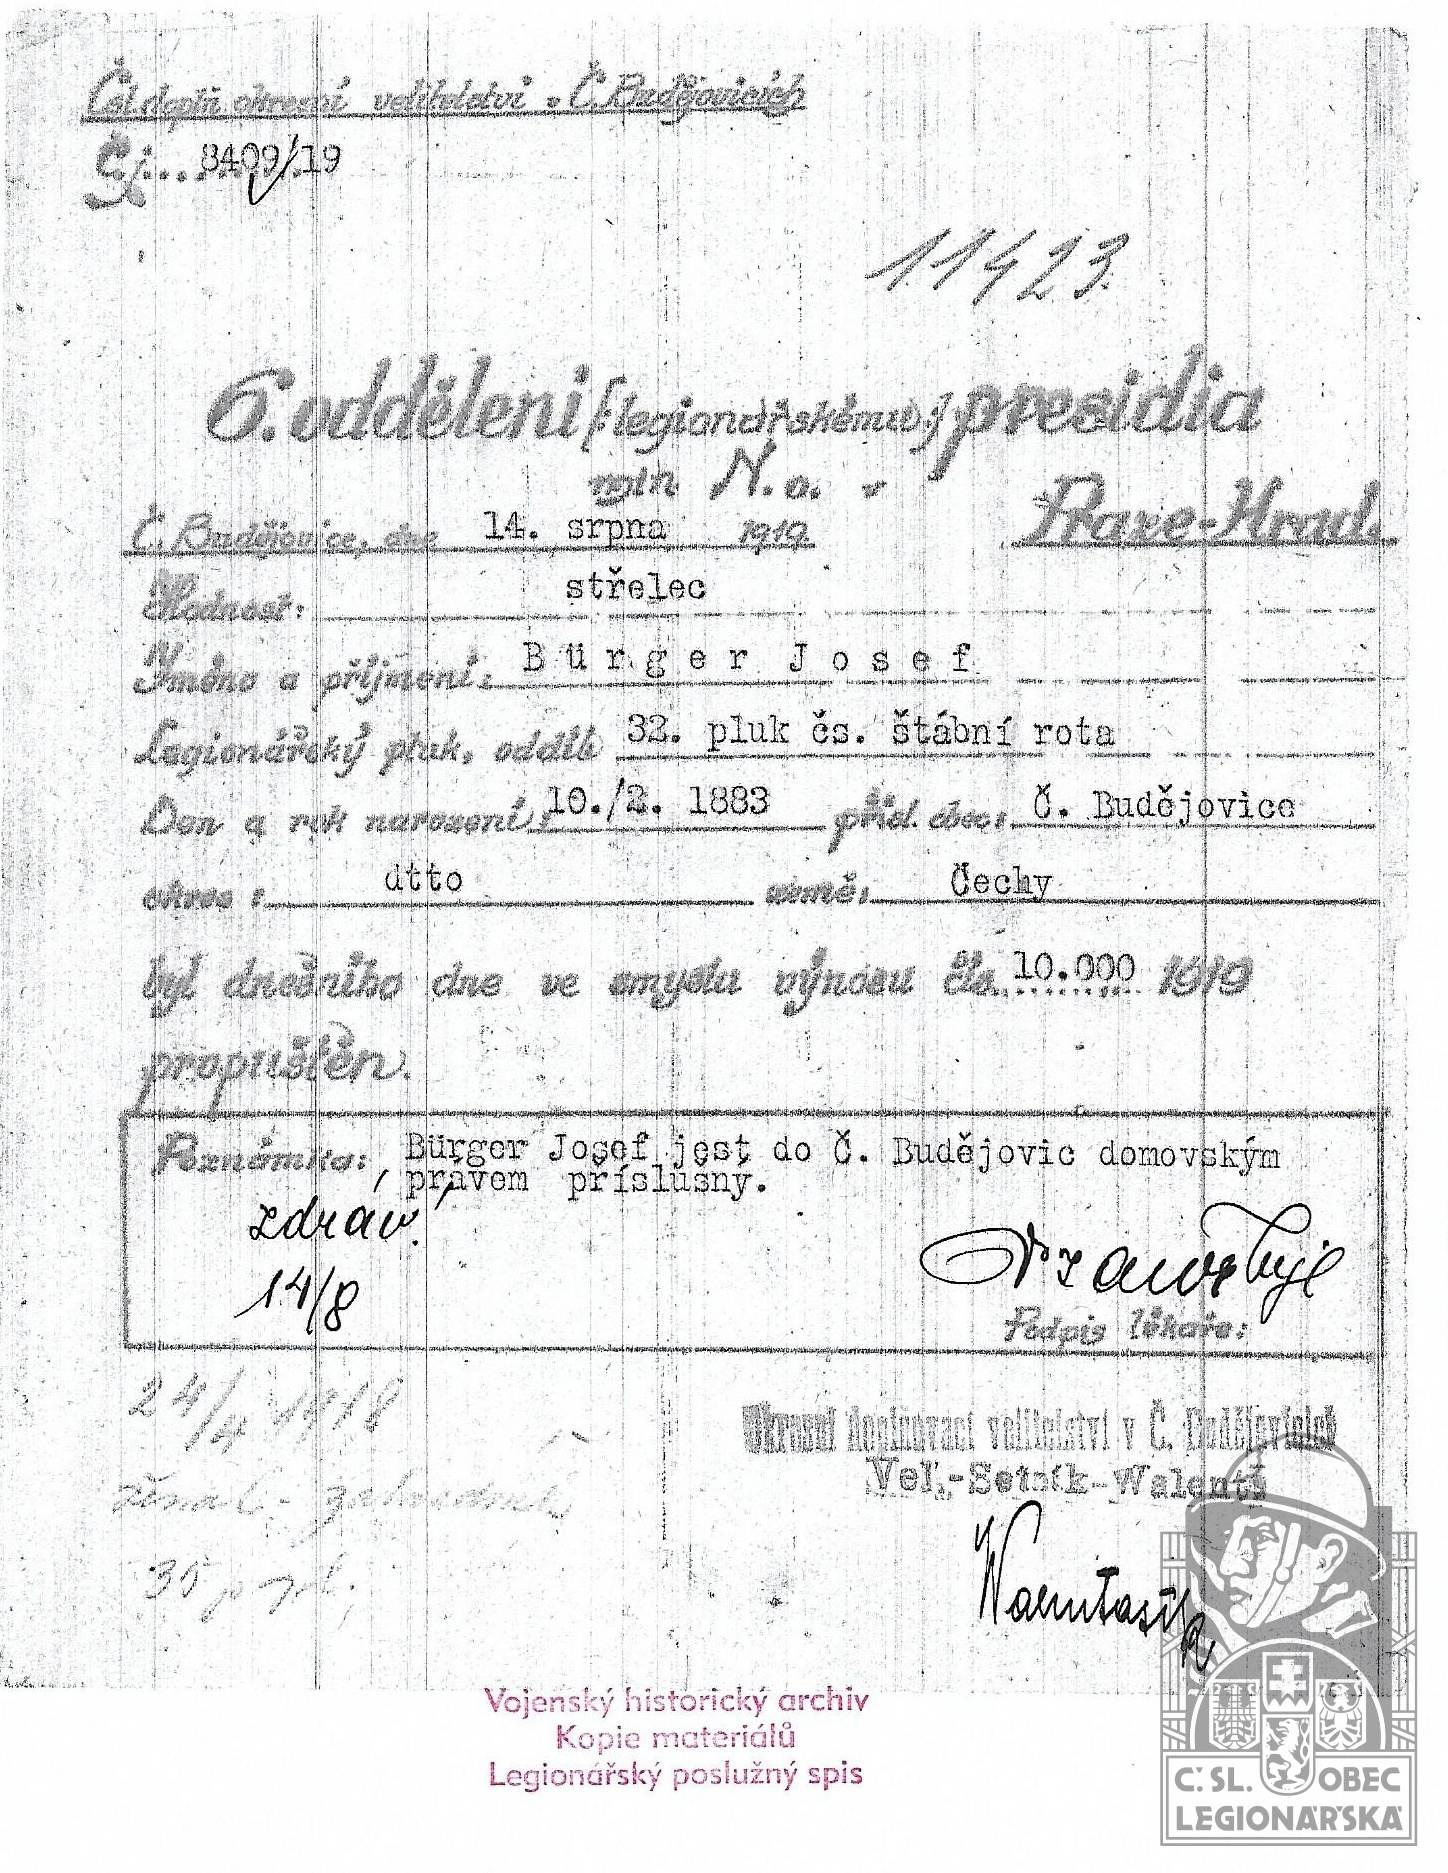 Čsl. doplň. okresní velitelství v Č. Budějovicích
Č.j. 8409/19
11423.
6. oddělení [legionářskému] presidia
min N.o. -
Praze-Hrad.
Č. Budějovice, dne 14. srpna 1919
Hodnost: střelec
Jméno a příjmení: Bürger Josef
Legionářský pluk, oddíl: 32. pluk čs. štábní rota
Den a rok narození: 10./2. 1883 přísl. obec: Č. Budějovice
okres: dtto země: Čechy
byl dnešního dne ve smyslu výnosu čís. 10.000 1919
propuštěn.
Poznámka: Bürger Josef jest do Č. Budějovic domovským
právem příslušný.
zdráv.
14/8
Podpis lékaře:
24/4 1918
Okresní doplňovací velitelství v Č. Budějovicích
Vel.-Setník-Walentý
35
Vojenský historický archiv
Kopie materiálů
Legionářský poslužný spis
Č. SL. OBEC
LEGIONÁŘSKÁ